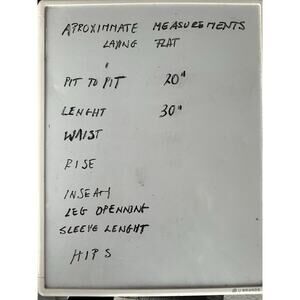 APROXIMMATE MEASUREMENTS
LAYING FLAT
PIT TO PIT 20"
LENGHT 30"
WAIST
RISE
INSEAM
LEG OPENNING
SLEEVE LENGHT
HIPS
U BRANDS